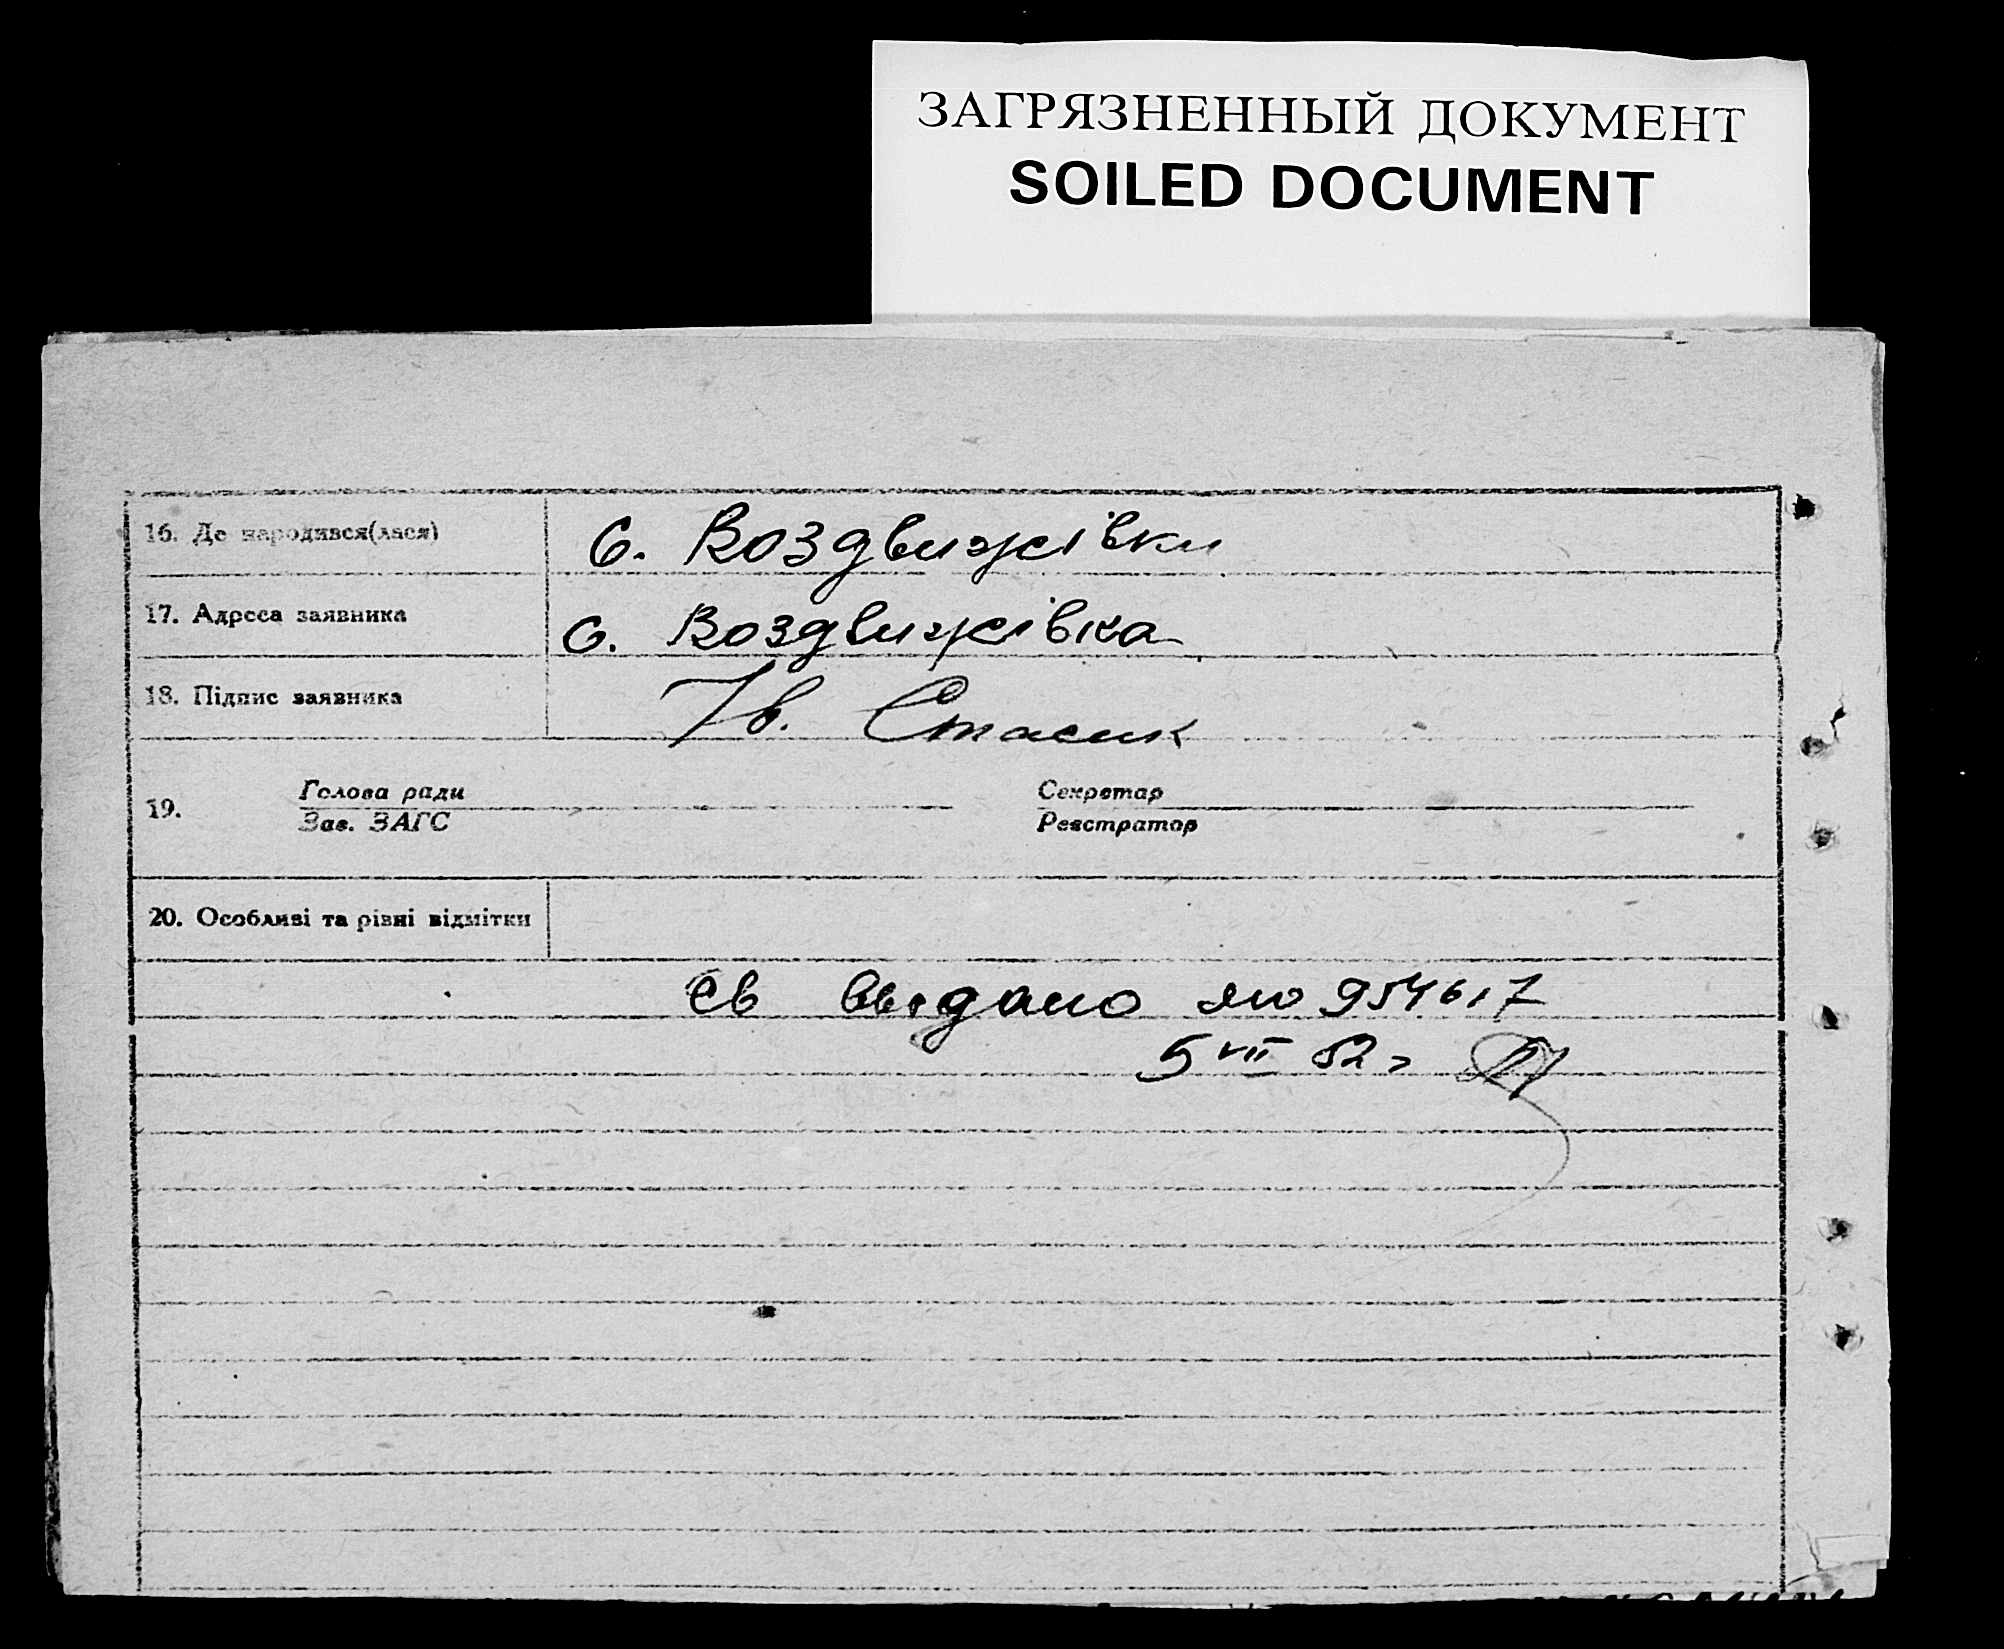 ЗАГРЯЗНЕННЫЙ ДОКУМЕНТ
SOILED DOCUMENT
16. Де народився(лася) с. Воздвижівки
17. Адреса заявника с. Воздвижівка
18. Підпис заявника Ів. Стасик
19. Голова ради Секретар
Зав. ЗАГС Реєстратор
20. Особливі та різні відмітки
Св выдано яю 954617
5 VII 52 г